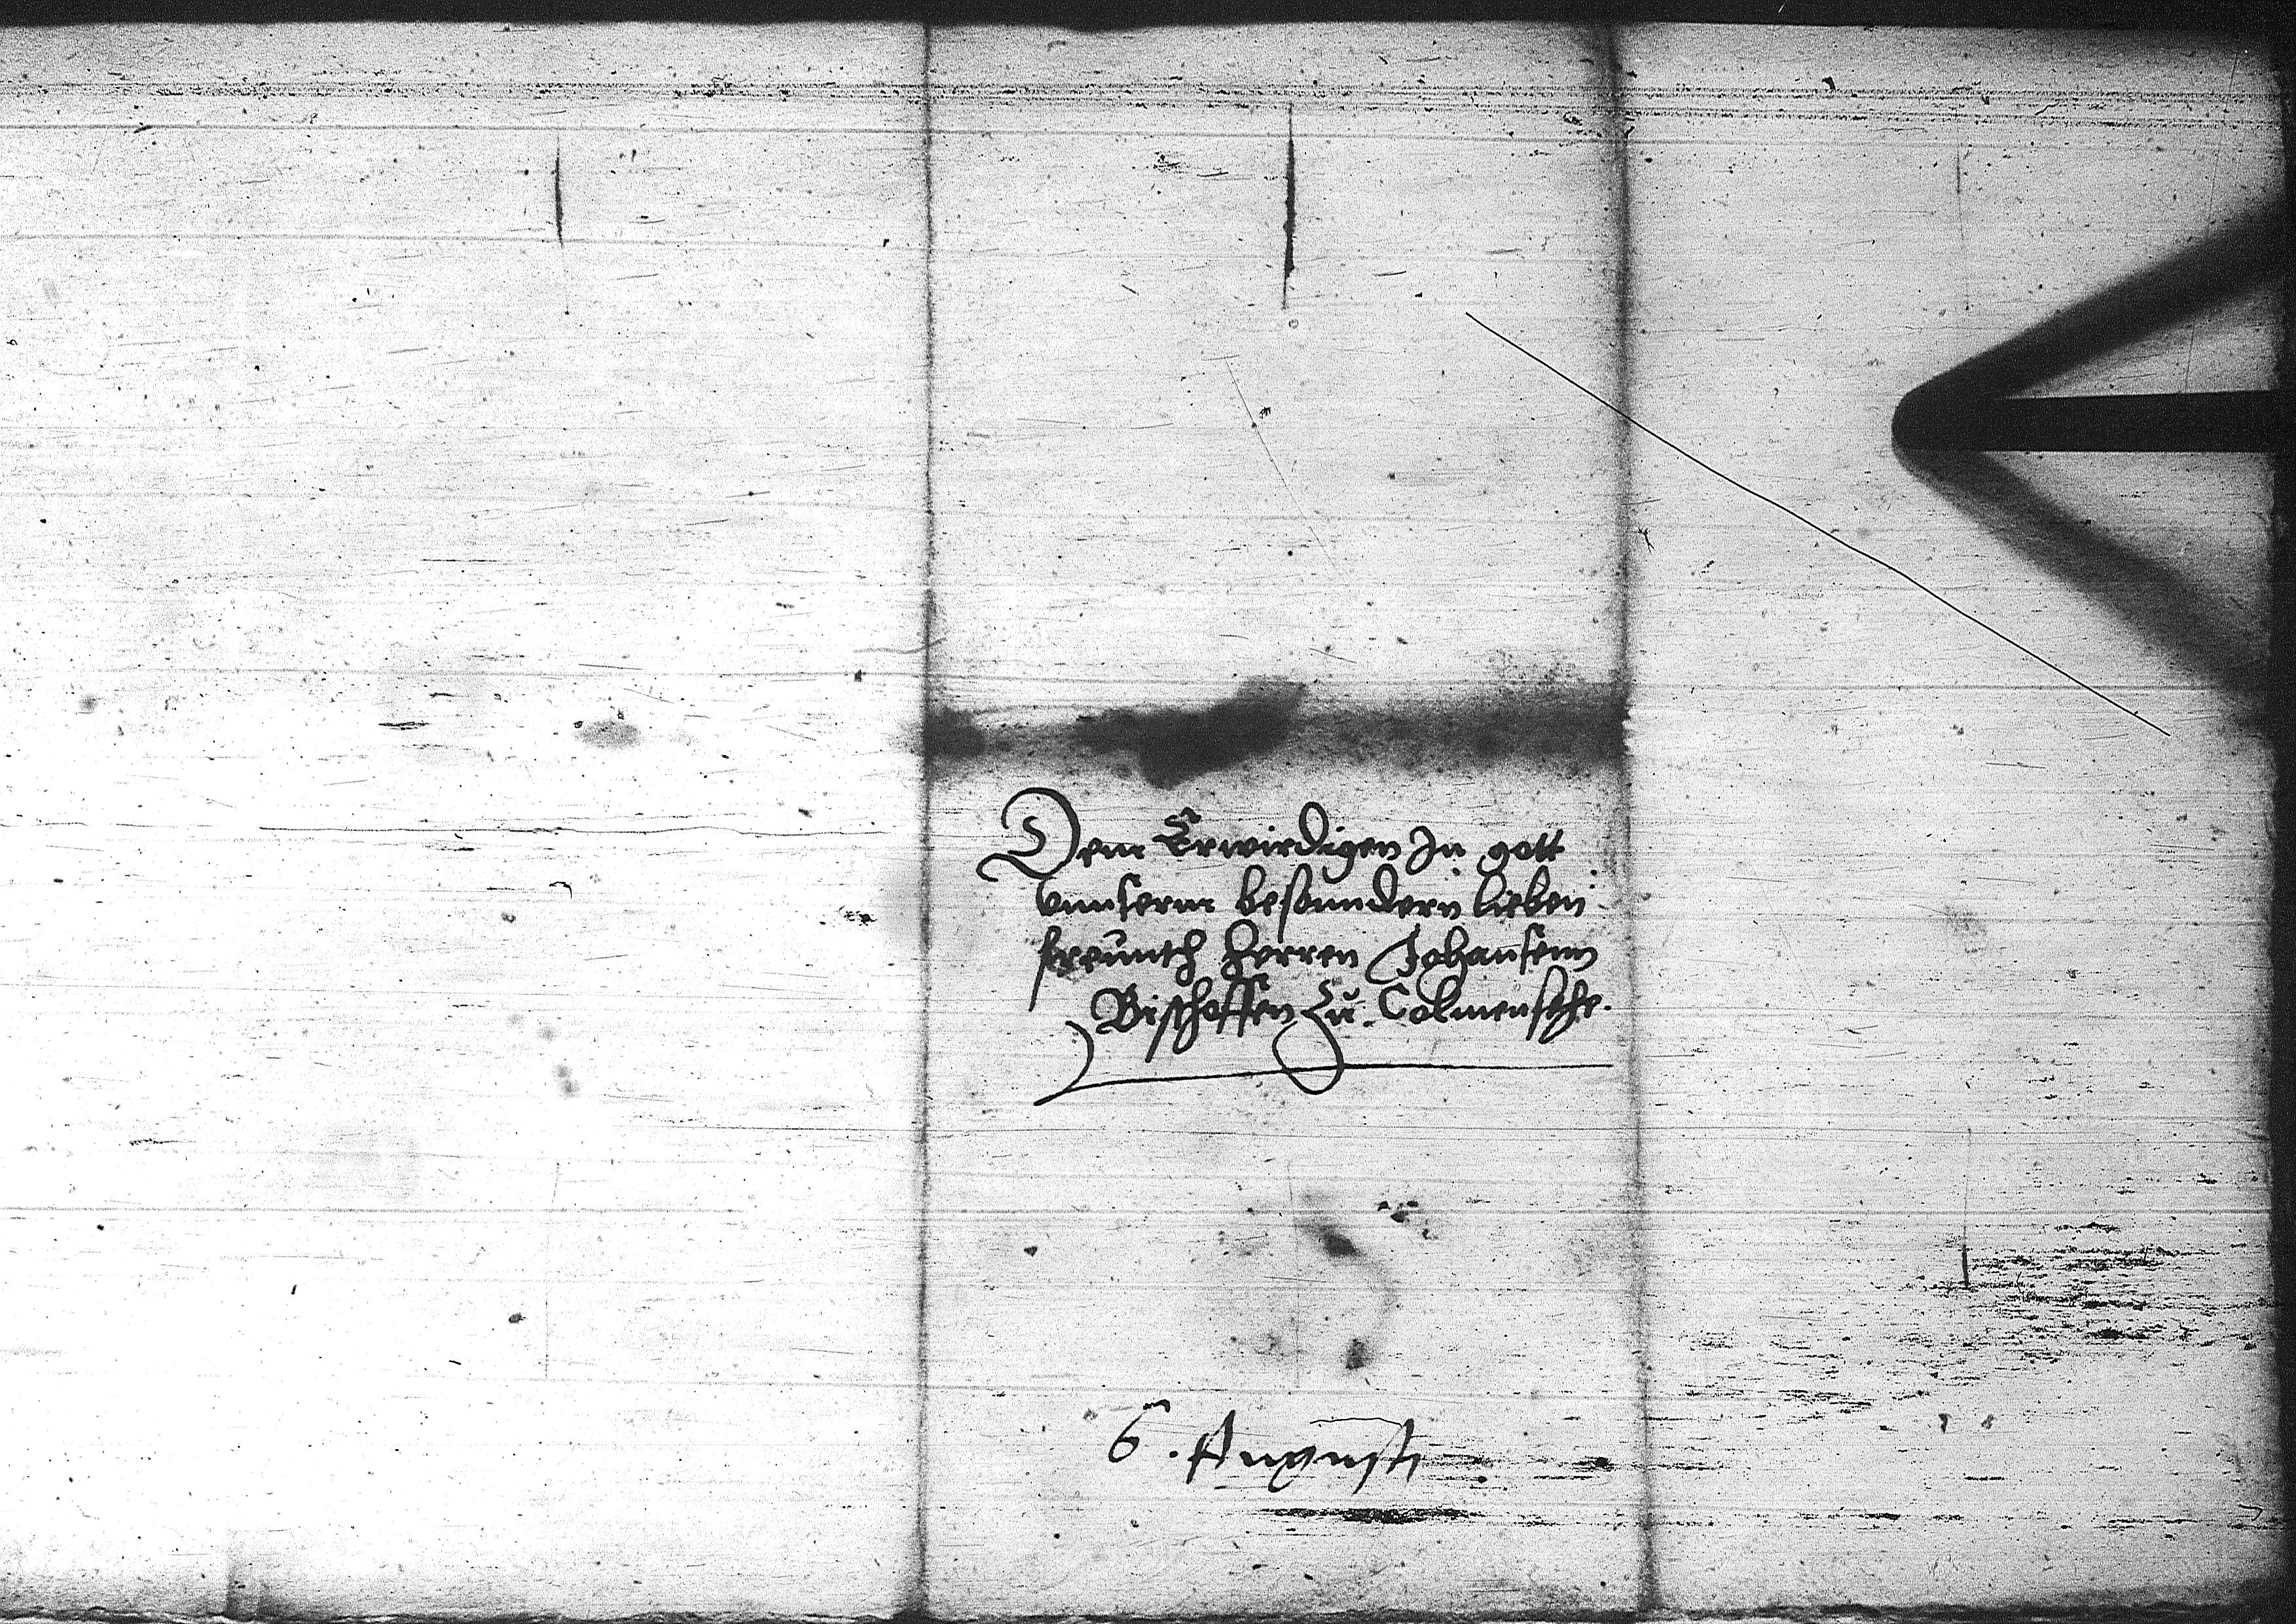 Dem Erwirdigen In gott
vnnserm besonndern lieben
freuntth herren Johannsenn
Bischoffen zu Colmensehe.
6. Augusti